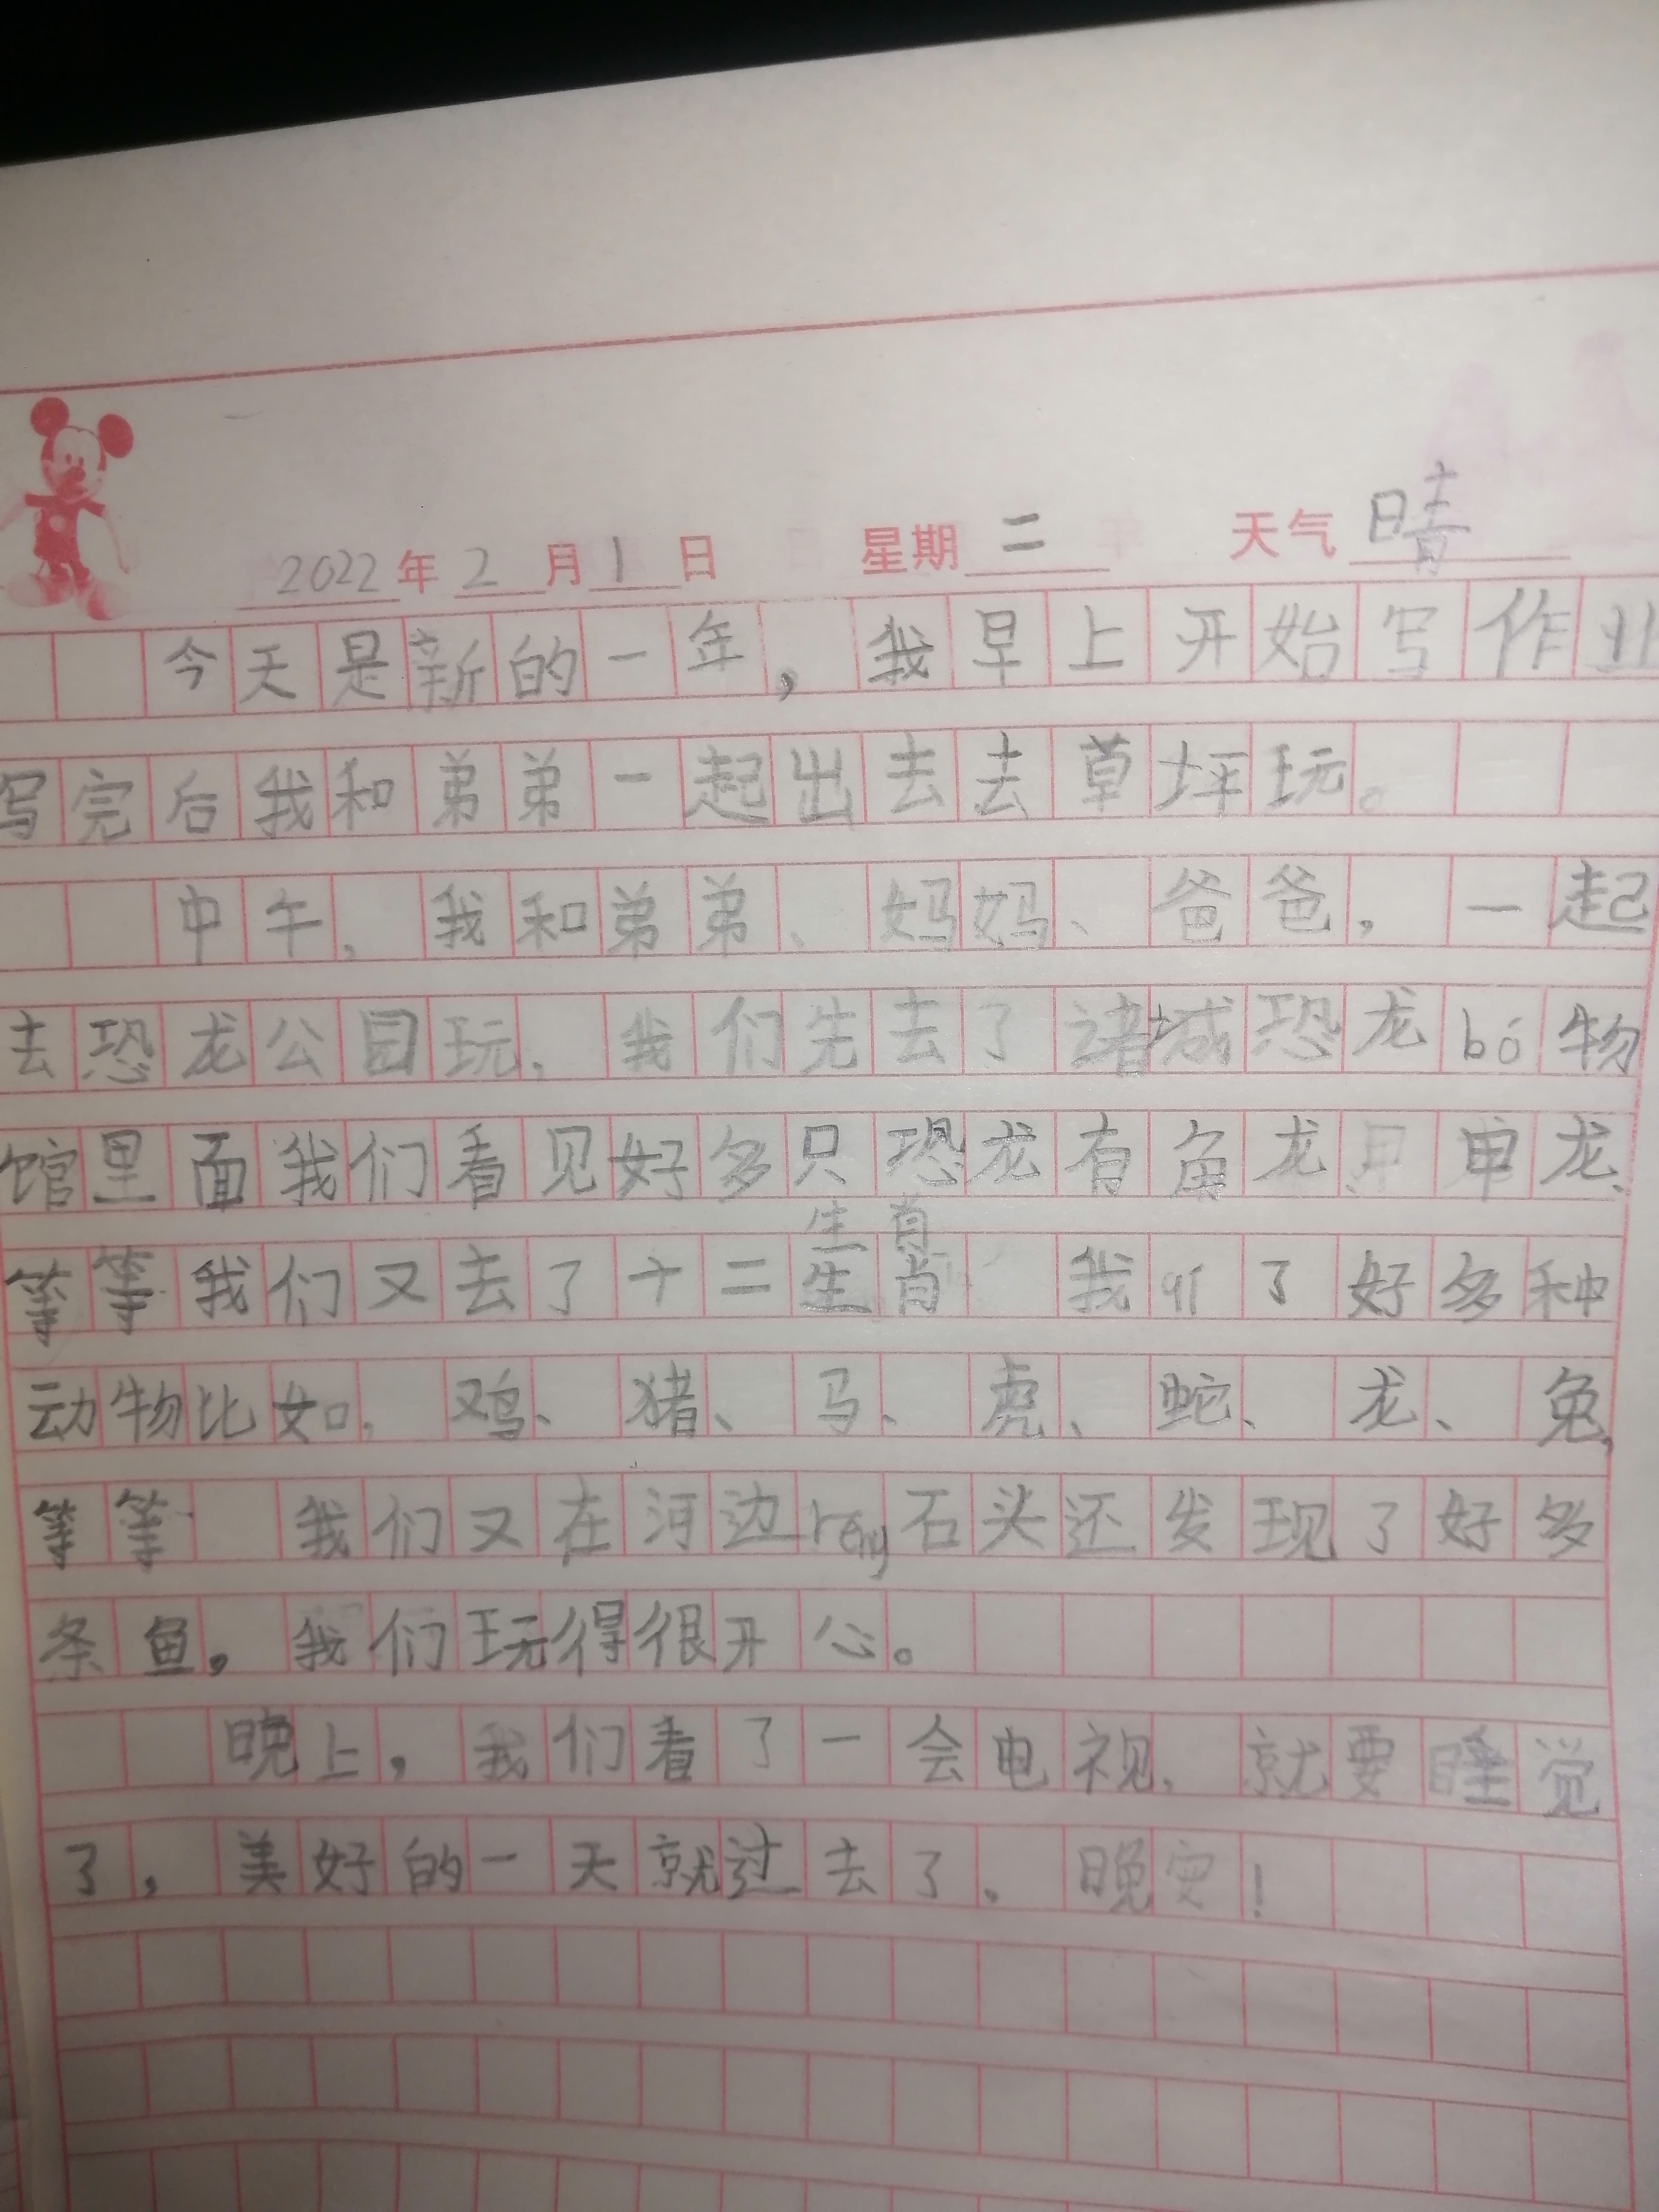 2022年2月1日 星期二 天气晴
今天是新的一年，我早上开始写作业
写完后我和弟弟一起出去去草坪玩。
中午，我和弟弟、妈妈、爸爸，一起
去恐龙公园玩，我们先去了诸城恐龙bó物
馆里面我们看见好多只恐龙有角龙 甲龙、
生肖
等等我们又去了十二生肖 我 了好多种
动物比如，鸡、猪、马、虎、蛇、龙、兔，
等等 我们又在河边rēng石头还发现了好多
条鱼，我们玩得很开心。
晚上，我们看了一会电视，就要睡觉
了，美好的一天就过去了。晚安！